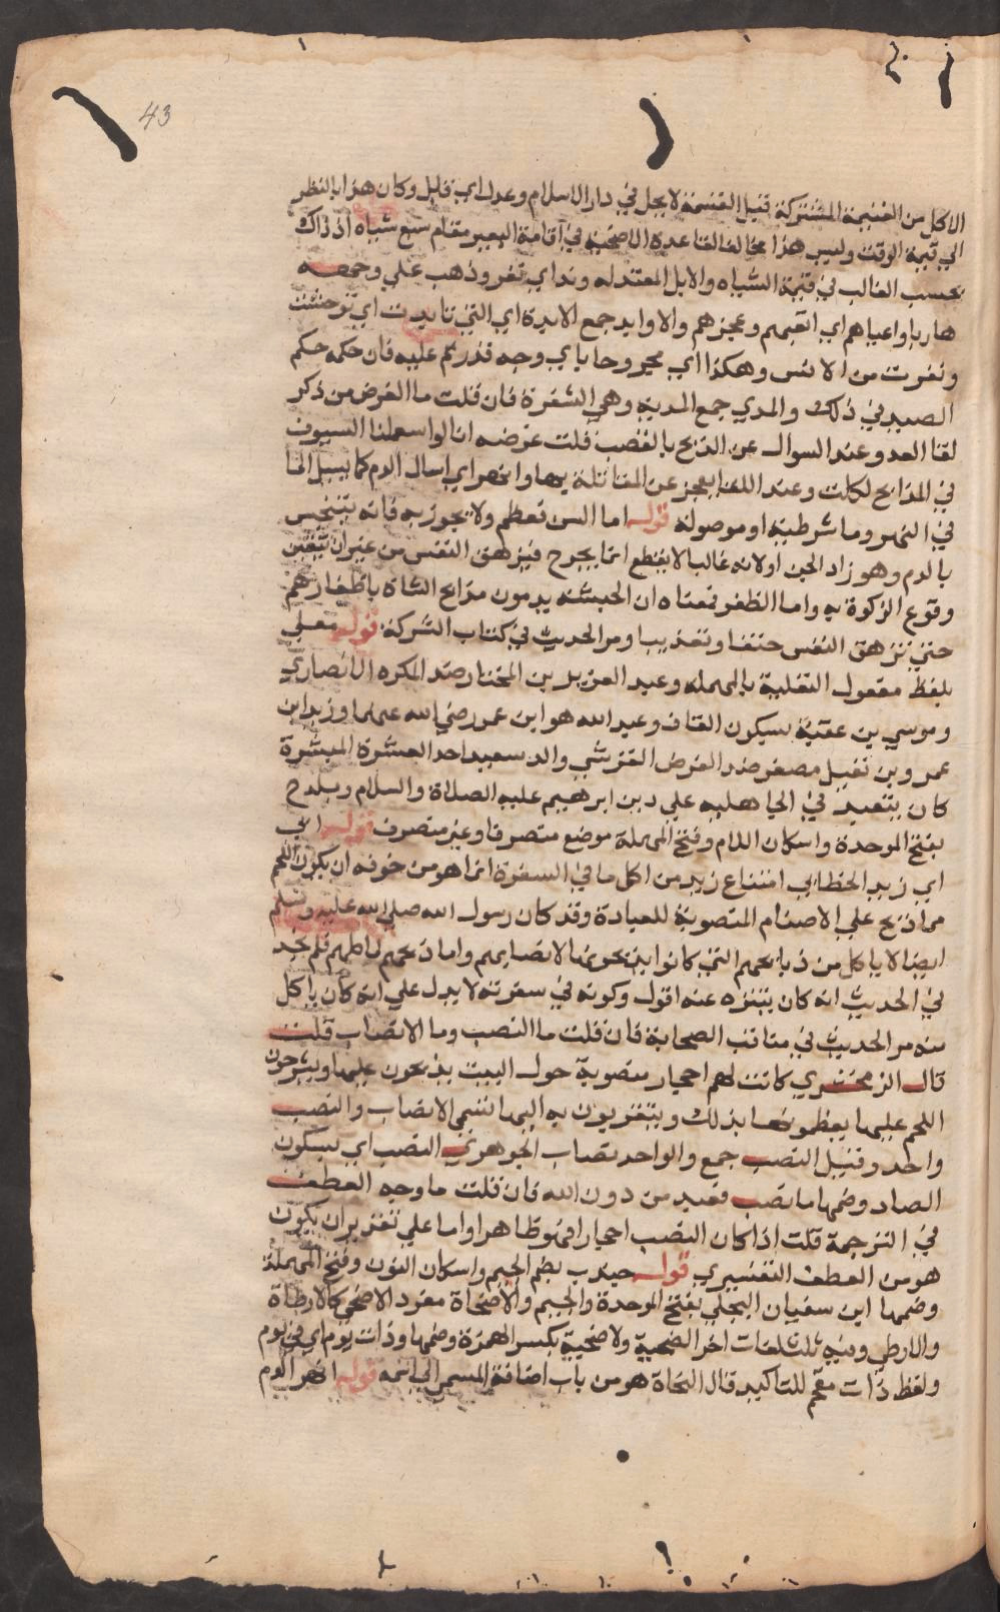 43
الاكل من الغنيمة المشتركة قبل القسمة لا يحل في دار الاسلام وعدل اي قابل وكان هذا بالنظر
الي قيمة الوقت وليس هذا مخالفا لقاعدة الاضحية في اقامة البعير مقام سبع شياه اذ ذاك
بحسب الغالب في قيمة الشياه والابل المعتدلة وند اي نفر وذهب علي وجهه
هاربا واعياهم اي اتعبهم وعجزهم والاوابد جمع الابدة اي التي تابدت اي توحشت
ونفرت من الانس وهكذا اي مجروحا باي وجه قدرتم عليه فان حكمه حكم
الصيد في ذلك والمدي جمع المدية وهي الشفرة فان قلت ما الغرض من ذكر
لقا العدو عند السوال عن الذبح بالقصب قلت غرضه انا لو استعملنا السيوف
في المذابح لكلت وعند اللقا نعجز عن المقاتلة بها وانهر اي اسال الدم كما يسيل الما
في النهر وما شرطية او موصولة قوله اما السن فعظم ولا يجوز به فانه يتنجس
بالدم وهو زاد الجن او لانه غالبا لا يقطع انما يجرح فيزهق النفس من غير ان يتيقن
وقوع الزكوة به واما الظفر فمعناه ان الحبشة يدمون مذابح الشاة باظفارهم
حتي تزهق النفس خنقا وتعذيبا ومر الحديث في كتاب الشركة قوله معلي
بلفظ مفعول التعلية بالمهملة وعبد العزيز بن المختار ضد المكره الانصاري
وموسي بن عقبة بسكون القاف وعبد الله هو ابن عمر رضي الله عنهما وزيد ابن
عمرو بن نفيل مصغر ضد الفرض القرشي والد سعيد احد العشرة المبشرة
كان يتعبد في الجاهلية علي دين ابرهيم عليه الصلاة والسلام وبلدح
بفتح الموحدة واسكان اللام وفتح المهملة موضع متصرفا وغير متصرف قوله ابي
اي زيد الخطابي امتناع زيد من اكل ما في السفرة انما هو من خوفه ان يكون اللحم
مما ذبح علي الاصنام المنصوبة للعبادة وقد كان رسول الله صلي الله عليه وسلم
ايضا لا ياكل من ذبايحهم التي كانوا يذبحونها لانصابهم واما ذبحهم لماكلهم فلم نجد
في الحديث انه كان يتنزه عنه اقول وكونه في سفرته لا يدل علي انه كان ياكل
منه مر الحديث في مناقب الصحابة فان قلت ما النصب وما الانصاب قلت
قال الزمخشري كانت لهم احجار منصوبة حول البيت يذبحون عليها ويشرحون
اللحم عليها يعظمونها بذلك ويتقربون به اليها تسمي الانصاب والنصب
واحد وقيل النصب جمع والواحد نصاب الجوهري النصب اي بسكون
الصاد وضمها ما نصب فعبد من دون الله فان قلت ما وجه العطف
في الترجمة قلت اذا كان النصب احجارا فهو ظاهر واما علي تقدير ان يكون
هو من العطف التفسيري قوله جندب بضم الجيم واسكان النون وفتح المهملة
وضمها ابن سفيان البجلي بفتح الموحدة والجيم والاضحاة مفرد الاضحي كالارطاة
والارطي وفيه ثلث لغات اخر الضحية ولاضحية بكسر الهمزة وضمها وذات يوم اي في يوم
ولفظ ذات مقحم للتاكيد قال النحاة هو من باب اضافة المسمي الي اسمه قوله انهر الدم